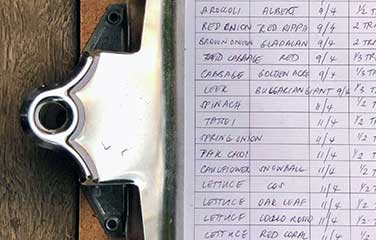 BROCCOLI ALBERT 9/4 1/2
RED ONION RED RIPPA 9/4 2 TRA
BROWN ONION GLADALAN 9/4 2 TR
RED CABBAGE RED 9/4 1/3 T
CABBAGE GOLDEN ACRE 9/4 1/3 T
LEEK BULGARIAN GIANT 9/4 1/3 T
SPINACH 11/4 1/2 T
TATSOI 11/4 1/2 T
SPRING ONION 9/4 1/2 T
PAK CHOI 11/4 1/2 T
CAULIFLOWER SNOWBALL 11/4 1/2 T
LETTUCE COS 11/4 1/2 T
LETTUCE OAK LEAF 11/4 1/2
LETTUCE LOLLO ROSSO 11/4 1/2
LETTUCE RED CORAL 11/4 1/2